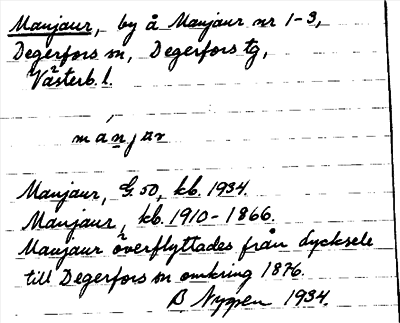 Manjaur, by å Manjaur nr 1-3,
Degerfors sn, Degerfors tg,
Västerb. l.
manjar
Manjaur, G.50, kb. 1934.
Manjaur, kb. 1910-1866.
Manjaur överflyttades från Lycksele
till Degerfors sn omkring 1876.
B Nygren 1934.